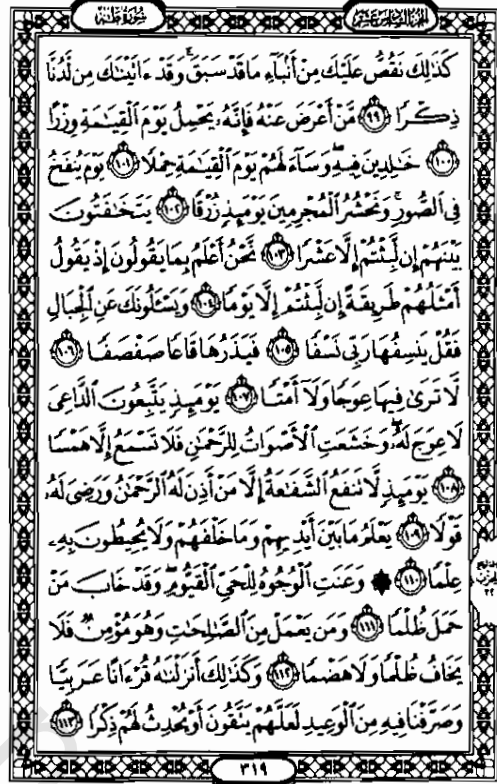 سُورَةُ طه
الجُزْءُ السَّادِسَ عَشَرَ
كَذَٰلِكَ نَقُصُّ عَلَيْكَ مِنْ أَنۢبَآءِ مَا قَدْ سَبَقَۚ وَقَدْ ءَاتَيْنَٰكَ مِن لَّدُنَّا
ذِكْرًا ٩٩ مَّنْ أَعْرَضَ عَنْهُ فَإِنَّهُۥ يَحْمِلُ يَوْمَ ٱلْقِيَٰمَةِ وِزْرًا
١٠٠ خَٰلِدِينَ فِيهِۖ وَسَآءَ لَهُمْ يَوْمَ ٱلْقِيَٰمَةِ حِمْلًا ١٠١ يَوْمَ يُنفَخُ
فِى ٱلصُّورِۚ وَنَحْشُرُ ٱلْمُجْرِمِينَ يَوْمَئِذٍ زُرْقًا ١٠٢ يَتَخَٰفَتُونَ
بَيْنَهُمْ إِن لَّبِثْتُمْ إِلَّا عَشْرًا ١٠٣ نَّحْنُ أَعْلَمُ بِمَا يَقُولُونَ إِذْ يَقُولُ
أَمْثَلُهُمْ طَرِيقَةً إِن لَّبِثْتُمْ إِلَّا يَوْمًا ١٠٤ وَيَسْـَٔلُونَكَ عَنِ ٱلْجِبَالِ
فَقُلْ يَنسِفُهَا رَبِّى نَسْفًا ١٠٥ فَيَذَرُهَا قَاعًا صَفْصَفًا ١٠٦
لَّا تَرَىٰ فِيهَا عِوَجًا وَلَآ أَمْتًا ١٠٧ يَوْمَئِذٍ يَتَّبِعُونَ ٱلدَّاعِىَ
لَا عِوَجَ لَهُۥۖ وَخَشَعَتِ ٱلْأَصْوَاتُ لِلرَّحْمَٰنِ فَلَا تَسْمَعُ إِلَّا هَمْسًا
١٠٨ يَوْمَئِذٍ لَّا تَنفَعُ ٱلشَّفَٰعَةُ إِلَّا مَنْ أَذِنَ لَهُ ٱلرَّحْمَٰنُ وَرَضِىَ لَهُۥ
قَوْلًا ١٠٩ يَعْلَمُ مَا بَيْنَ أَيْدِيهِمْ وَمَا خَلْفَهُمْ وَلَا يُحِيطُونَ بِهِۦ
عِلْمًا ١١٠ ۞ وَعَنَتِ ٱلْوُجُوهُ لِلْحَىِّ ٱلْقَيُّومِۖ وَقَدْ خَابَ مَنْ
حَمَلَ ظُلْمًا ١١١ وَمَن يَعْمَلْ مِنَ ٱلصَّٰلِحَٰتِ وَهُوَ مُؤْمِنٌ فَلَا
يَخَافُ ظُلْمًا وَلَا هَضْمًا ١١٢ وَكَذَٰلِكَ أَنزَلْنَٰهُ قُرْءَانًا عَرَبِيًّا
وَصَرَّفْنَا فِيهِ مِنَ ٱلْوَعِيدِ لَعَلَّهُمْ يَتَّقُونَ أَوْ يُحْدِثُ لَهُمْ ذِكْرًا ١١٣
٣١٩